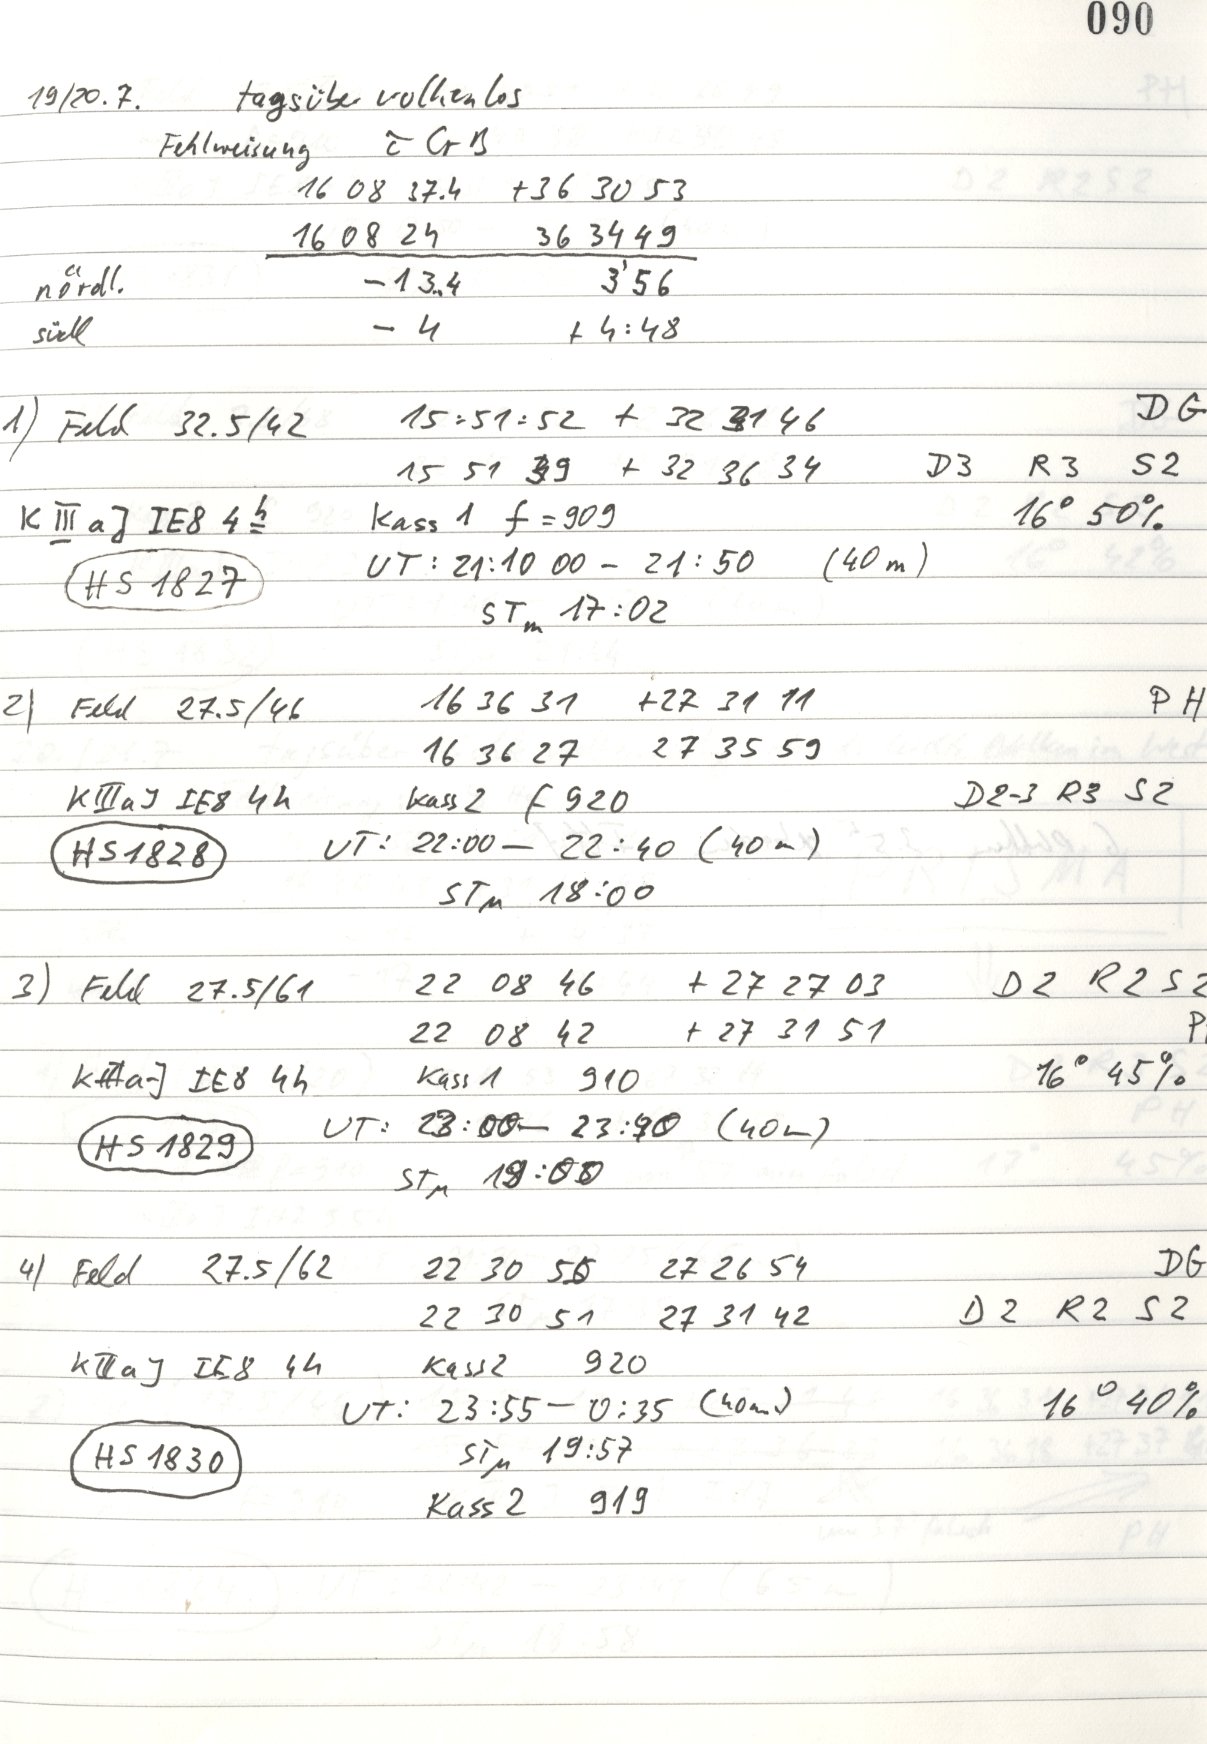 090
19/20.7. tagsüber wolkenlos
Fehlweisung τ CrB
16 08 37.4 +36 30 53
16 08 24 36 34 49
nördl. -13.4 3'56
südl - 4 + 4:48
1) Feld 32.5/42 15:51:52 + 32 31 46 DG
15 51 39 + 32 36 34 D3 R3 S2
K III aJ IE8 4h Kass 1 f = 909 16° 50%
HS 1827 UT: 21:10 00 - 21:50 (40m)
STm 17:02
2) Feld 27.5/46 16 36 31 +27 31 11 PH
16 36 27 27 35 59
KIIIaJ IE8 4h Kass 2 f 920 D2-3 R3 S2
HS1828 UT: 22:00 - 22:40 (40m)
STM 18:00
3) Feld 27.5/61 22 08 46 + 27 27 03 D2 R2 S2
22 08 42 + 27 31 51
KIIIaJ IE8 4h Kass 1 910 16° 45%
HS 1829 UT: 23:00 - 23:40 (40m)
STM
4) Feld 27.5/62 22 30 55 27 26 54 DG
22 30 51 27 31 42 D2 R2 S2
KIIIaJ IE8 4h Kass 2 920
UT: 23:55 - 0:35 (40m) 16° 40%
HS 1830 STM 19:57
Kass 2 919